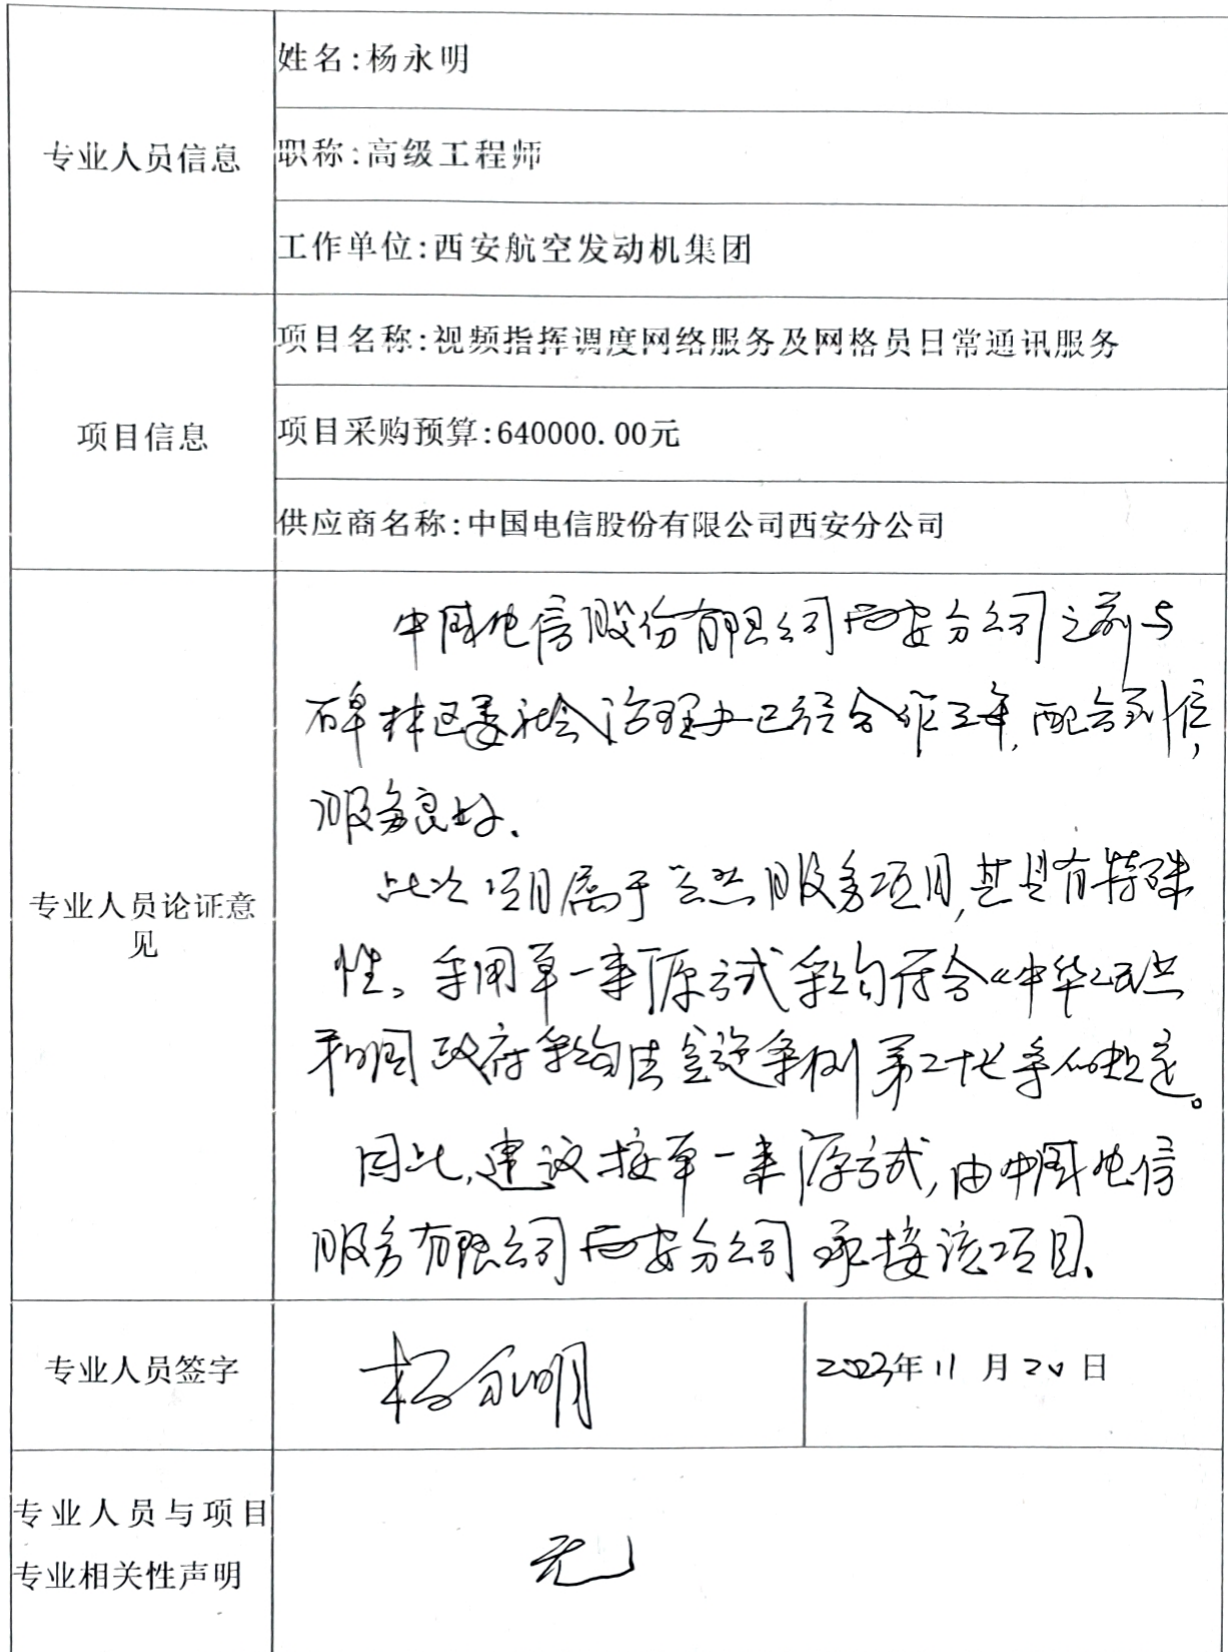 专业人员信息
姓名:杨永明
职称:高级工程师
工作单位:西安航空发动机集团
项目信息
项目名称:视频指挥调度网络服务及网格员日常通讯服务
项目采购预算:640000.00元
供应商名称:中国电信股份有限公司西安分公司
专业人员论证意
见
中国电信股份有限公司西安分公司之前与
碑林区委社会治理办已经合作三年,配合到位,
服务良好.
此次项目属于公共服务项目,其具有特殊
性。采用单一来源方式采购符合《中华人民共
和国政府采购法实施条例第二十七条的规定。
因此,建议按单一来源方式,由中国电信
服务有限公司西安分公司承接该项目.
专业人员签字
杨永明
2023年11月20日
专业人员与项目
专业相关性声明
无